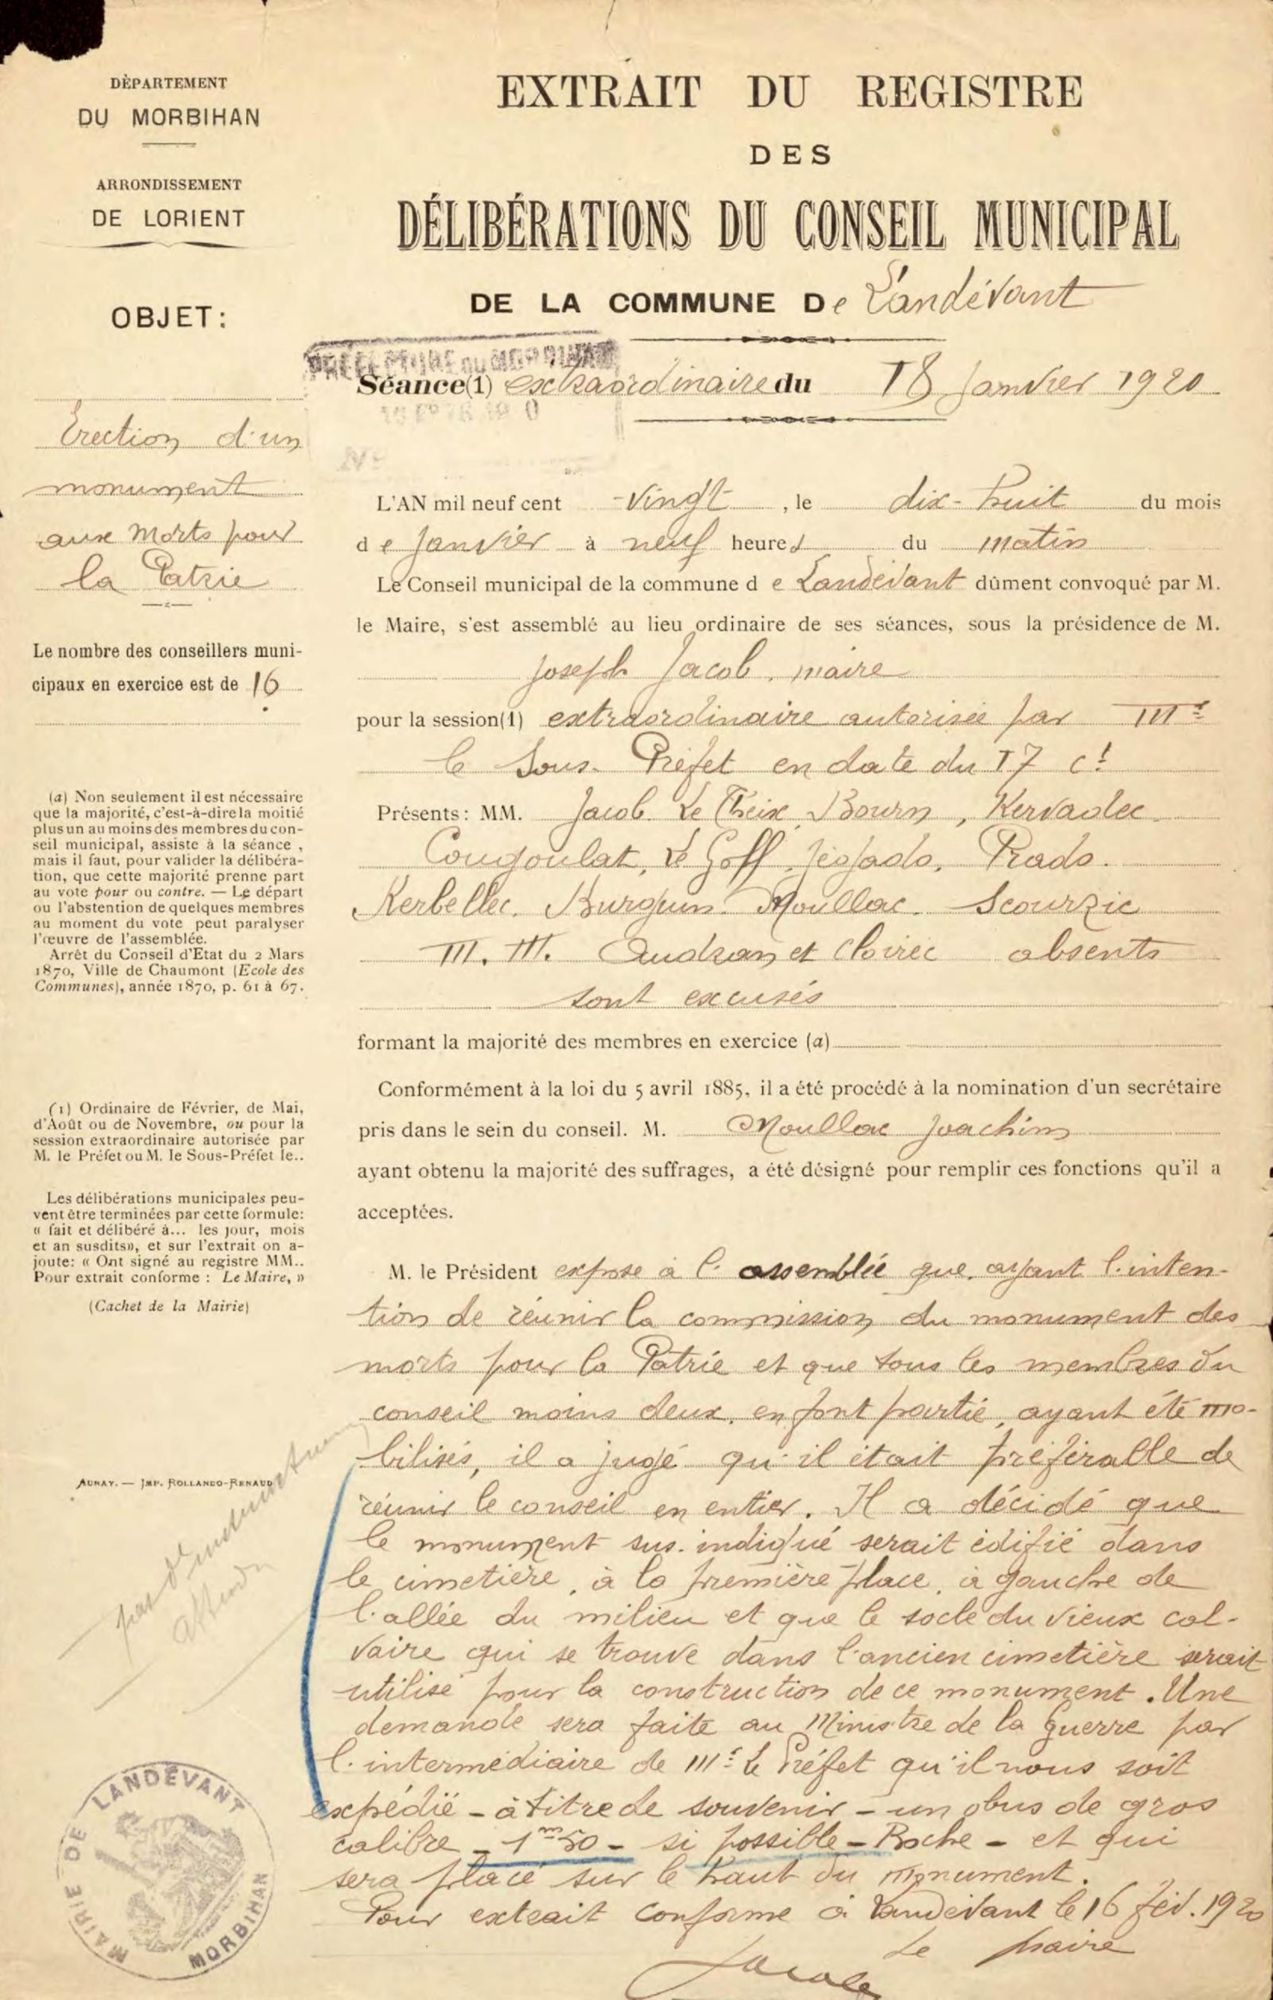 DÉPARTEMENT
DU MORBIHAN
ARRONDISSEMENT
DE LORIENT
OBJET:
Erection d'un
monument
aux morts pour
la Patrie
Le nombre des conseillers muni-
cipaux en exercice est de 16
(a) Non seulement il est nécessaire
que la majorité, c'est-à-dire la moitié
plus un au moins des membres du con-
seil municipal, assiste à la séance,
mais il faut, pour valider la délibéra-
tion, que cette majorité prenne part
au vote pour ou contre. — Le départ
ou l'abstention de quelques membres
au moment du vote peut paralyser
l'œuvre de l'assemblée.
Arrêt du Conseil d'Etat du 2 Mars
1870, Ville de Chaumont (Ecole des
Communes), année 1870, p. 61 à 67.
(1) Ordinaire de Février, de Mai,
d'Août ou de Novembre, ou pour la
session extraordinaire autorisée par
M. le Préfet ou M. le Sous-Préfet le..
Les délibérations municipales peu-
vent être terminées par cette formule:
« fait et délibéré à... les jour, mois
et an susdits», et sur l'extrait on a-
joute: « Ont signé au registre MM..
Pour extrait conforme : Le Maire, »
(Cachet de la Mairie)
AURAY. — IMP. ROLLANDO-RENAUD
pas d'
MAIRIE DE LANDÉVANT
MORBIHAN
EXTRAIT DU REGISTRE
DES
DÉLIBÉRATIONS DU CONSEIL MUNICIPAL
DE LA COMMUNE De Landévant
PRÉFECTURE DU MORBIHAN
Séance(1) extraordinaire du 18 Janvier 1920
No
L'AN mil neuf cent -vingt- , le dix-huit du mois
de Janvier à neuf heures du matin
Le Conseil municipal de la commune de Landévant dûment convoqué par M.
le Maire, s'est assemblé au lieu ordinaire de ses séances, sous la présidence de M.
Joseph Jacob, maire
pour la session(1) extraordinaire autorisée par Mr
le Sous-Préfet en date du 17 ct
Présents: MM. Jacob. Le Theix, Bourn, Kervadec
Cougoulat, Le Goff, Jégado, Prado.
Kerbellec. Burguin. Moullac. Scourzic
M. M. Audran et Cloirec absents
sont excusés
formant la majorité des membres en exercice (a)
Conformément à la loi du 5 avril 1885, il a été procédé à la nomination d'un secrétaire
pris dans le sein du conseil. M. Moullac Joachim
ayant obtenu la majorité des suffrages, a été désigné pour remplir ces fonctions qu'il a
acceptées.
M. le Président expose à l'assemblée que, ayant l'inten-
tion de réunir la commission du monument des
morts pour la Patrie et que tous les membres du
conseil moins deux, en font partie, ayant été mo-
bilisés, il a jugé qu'il était préférable de
réunir le conseil en entier. Il a décidé que
le monument sus-indiqué serait édifié dans
le cimetière, à la première place, à gauche de
l'allée du milieu et que le socle du vieux cal-
vaire qui se trouve dans l'ancien cimetière serait
utilisé pour la construction de ce monument. Une
demande sera faite au Ministre de la Guerre par
l'intermédiaire de Mr le Préfet qu'il nous soit
expédié - à titre de souvenir - un obus de gros
calibre - 1m50 - si possible - Boche - et qui
sera placé sur le haut du monument.
Pour extrait conforme à Landévant le 16 fév. 1920
Le Maire
Jacob